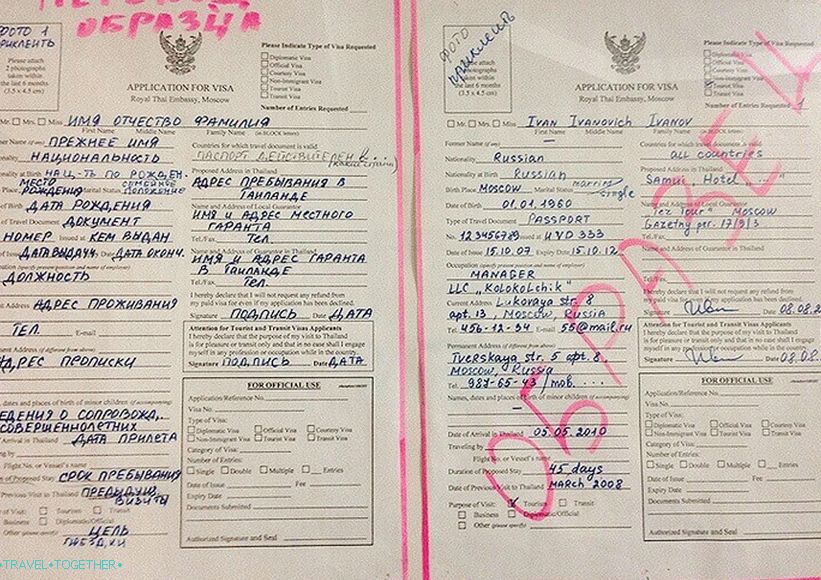 ОБРАЗЦА
ФОТО 1
Please attach
2 photographs
taken within
the last 6 months
(3.5 x 4.5 cm)
APPLICATION FOR VISA
Royal Thai Embassy, Moscow
Please Indicate Type of Visa Requested
Diplomatic Visa
Official Visa
Courtesy Visa
Non-Immigrant Visa
Tourist Visa
Transit Visa
Number of Entries Requested
Mr. Mrs. Miss ИМЯ ОТЧЕСТВО ФАМИЛИЯ
First Name Middle Name Family Name (in BLOCK letters)
ПРЕЖНЕЕ ИМЯ
НАЦИОНАЛЬНОСТЬ
Nationality at Birth НАЦ-ТЬ ПО РОЖДЕН.
МЕСТО РОЖДЕНИЯ СЕМЕЙНОЕ ПОЛОЖЕНИЕ
of Birth ДАТА РОЖДЕНИЯ
of Travel Document ДОКУМЕНТ
НОМЕР Issued at КЕМ ВЫДАН
ДАТА ВЫДАЧИ ДАТА ОКОНЧ.
ДОЛЖНОСТЬ
АДРЕС ПРОЖИВАНИЯ
ТЕЛ. E-mail
Permanent Address (if different from above)
АДРЕС ПРОПИСКИ
dates and places of birth of minor children (if accompanying)
СОВЕРШЕННОЛЕТНИХ
of Arrival in Thailand ДАТА ПРИЛЕТА
Flight No. or Vessel's name
of Proposed Stay СРОК ПРЕБЫВАНИЯ
Previous Visit to Thailand ПРЕДЫДУЩ. ВИЗИТЫ
Tourism Transit
Business Diplomatic/Official
Other (please specify) ЦЕЛЬ
Countries for which travel document is valid
ПАСПОРТ ДЕЙСТВИТЕЛЕН В
Proposed Address in Thailand
АДРЕС ПРЕБЫВАНИЯ В
ТАИЛАНДЕ
Name and Address of Local Guarantor
ИМЯ И АДРЕС МЕСТНОГО
ГАРАНТА
Tel./Fax. ТЕЛ
Name and Address of Guarantor in Thailand
ИМЯ И АДРЕС ГАРАНТА
В ТАИЛАНДЕ
Tel./Fax. ТЕЛ.
I hereby declare that I will not request any refund from
my paid visa fee even if my application has been declined.
Signature ПОДПИСЬ ДАТА
Attention for Tourist and Transit Visas Applicants
I hereby declare that the purpose of my visit to Thailand
is for pleasure or transit only and that in no case shall I engage
myself in any profession or occupation while in the country.
Signature ПОДПИСЬ Date ДАТА
FOR OFFICIAL USE
Application/Reference No.
Visa No.
Type of Visa:
Diplomatic Visa Official Visa Courtesy Visa
Non-Immigrant Visa Tourist Visa Transit Visa
Category of Visa:
Number of Entries:
Single Double Multiple Entries
Date of Issue Fee
Expiry Date
Documents Submitted
Authorized Signature and Seal
ФОТО
приклеить
Please attach
2 photographs
taken within
the last 6 months
(3.5 x 4.5 cm)
APPLICATION FOR VISA
Royal Thai Embassy, Moscow
Please Indicate Type of Visa Requested
Diplomatic Visa
Official Visa
Courtesy Visa
Non-Immigrant Visa
Tourist Visa
Transit Visa
Number of Entries Requested 1
Mr. Mrs. Miss IVAN IVANOVICH IVANOV
First Name Middle Name Family Name (in BLOCK letters)
Former Name (if any) —
Nationality Russian
Nationality at Birth Russian
Birth Place MOSCOW Marital Status married single
Date of Birth 01.01.1960
Type of Travel Document PASSPORT
No. 123456789 Issued at UVD 333
Date of Issue 15.10.07 Expiry Date 15.10.12
Occupation (specify present position and name of employer)
MANAGER
LLC „Kolokolchik"
Current Address Lukovaya str. 8
apt. 13, Moscow, Russia
Tel. 456-12-34 E-mail 55@mail.ru
Permanent Address (if different from above)
Tverskaya str. 5 apt. 8,
Moscow, Russia
Tel. 987-65-43 / mob. ...
Names, dates and places of birth of minor children (if accompanying)
—
Date of Arrival in Thailand 05.05.2010
Traveling by
Flight No. or Vessel's name
Duration of Proposed Stay 45 days
Date of Previous Visit to Thailand MARCH 2008
Purpose of Visit: Tourism Transit
Business Diplomatic/Official
Other (please specify)
Countries for which travel document is valid
all countries
Proposed Address in Thailand
Samui Hotel „ ... "
Name and Address of Local Guarantor
„Tez Tour" Moscow
Gazetny per. 17/9/3
Tel./Fax.
Name and Address of Guarantor in Thailand
Tel./Fax.
I hereby declare that I will not request any refund from
my paid visa fee even if my application has been declined.
Signature Date 08.08.
Attention for Tourist and Transit Visas Applicants
I hereby declare that the purpose of my visit to Thailand
is for pleasure or transit only and that in no case shall I engage
myself in any profession or occupation while in the country.
Signature Date 08.08.
FOR OFFICIAL USE
Application/Reference No.
Visa No.
Type of Visa:
Diplomatic Visa Official Visa Courtesy Visa
Non-Immigrant Visa Tourist Visa Transit Visa
Category of Visa:
Number of Entries:
Single Double Multiple Entries
Date of Issue Fee
Expiry Date
Documents Submitted
Authorized Signature and Seal
ОБРАЗЕЦ
•TRAVEL•TOGETHER•